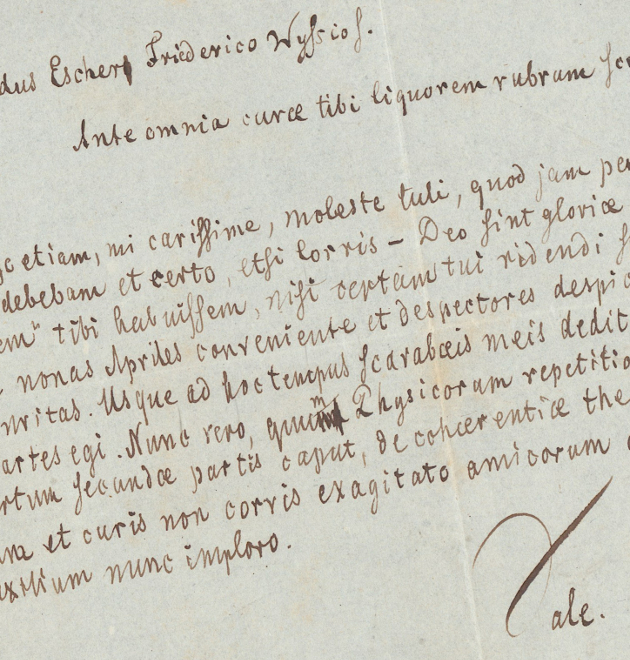 dus Escher Friederico Wyssio s.
Ante omnia curæ tibi liquorem rubrum
etiam, mi carissime, moleste tuli, quod jam
debebam et certo, etsi corvis – Deo sint gloriæ
tibi habuissem, nisi certam tui ridendi
nonas Apriles conveniente et despectores
Usque ad hoc tempus scarabæis meis
egi. Nunc vero, quum Physicorum
secundæ partis caput, de cohærentiæ
et curis non corvis exagitato amicorum
nunc imploro.
Vale.